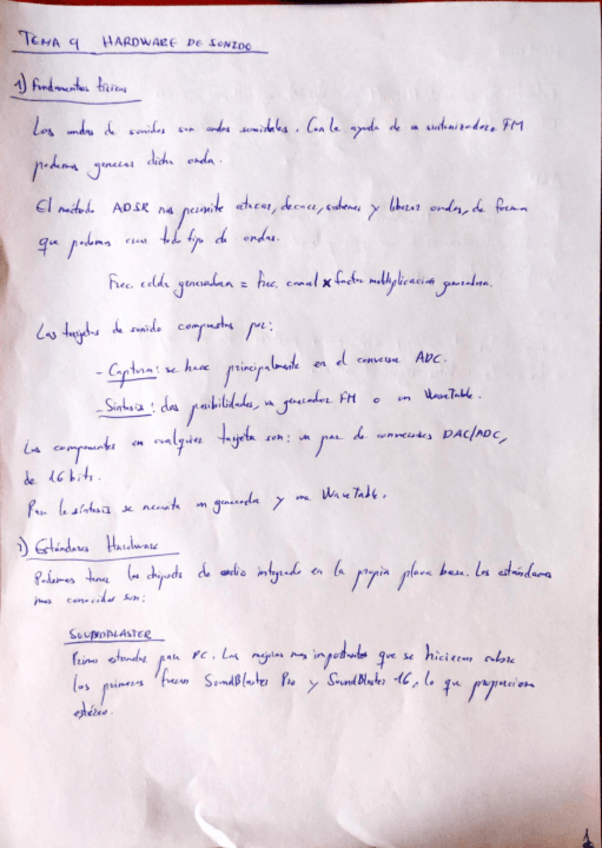 TEMA 9 HARDWARE DE SONIDO
1) Fundamentos físicos
Las ondas de sonidos son ondas senoidales. Con la ayuda de un sintonizador FM
podemos generar dicha onda.
El método ADSR nos permite atacar, decaer, sostener y liberar ondas, de forma
que podemos crear todo tipo de ondas.
Frec. celda generadora = frec. canal x factor multiplicacion generadora.
Las tarjetas de sonido compuestas por:
- Captura: se hace principalmente en el conversor ADC.
- Síntesis: dos posibilidades, un generador FM o un WaveTable.
Los componentes en cualquier tarjeta son: un par de conversores DAC/ADC,
de 16 bits.
Para la síntesis se necesita un generador y una WaveTable.
2) Estándares Hardware
Podemos tener los chipsets de audio integrado en la propia placa base. Los estándares
mas conocidos son:
SOUNDBLASTER
Primer estandar para PC. Las mejoras mas importantes que se hicieron sobre
las primeras fueron SoundBlaster Pro y SoundBlaster 16, lo que proporciona
estéreo.
1